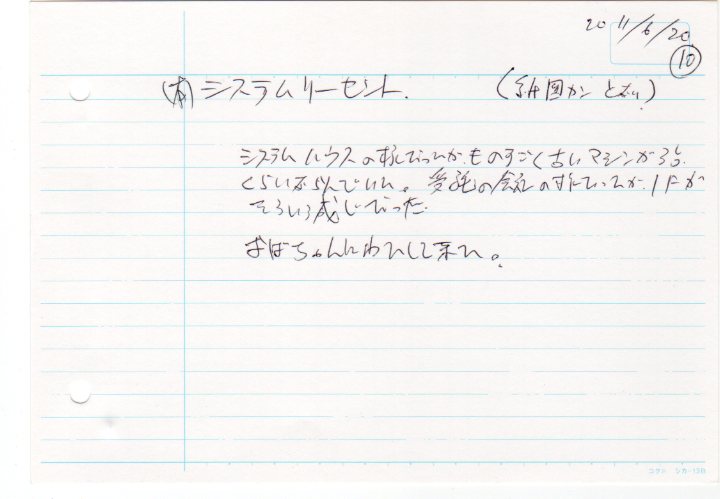 2011/6/20
⑩
(有)システムリーセント. (紙図カン となり)
システムハウスの様だったが、ものすごく古いマシンが3台
くらい並んでいた。受託の会社の様だったが、1Fが
そういう感じだった.
おばちゃんにわたして来た。
コクヨ シカ-13B